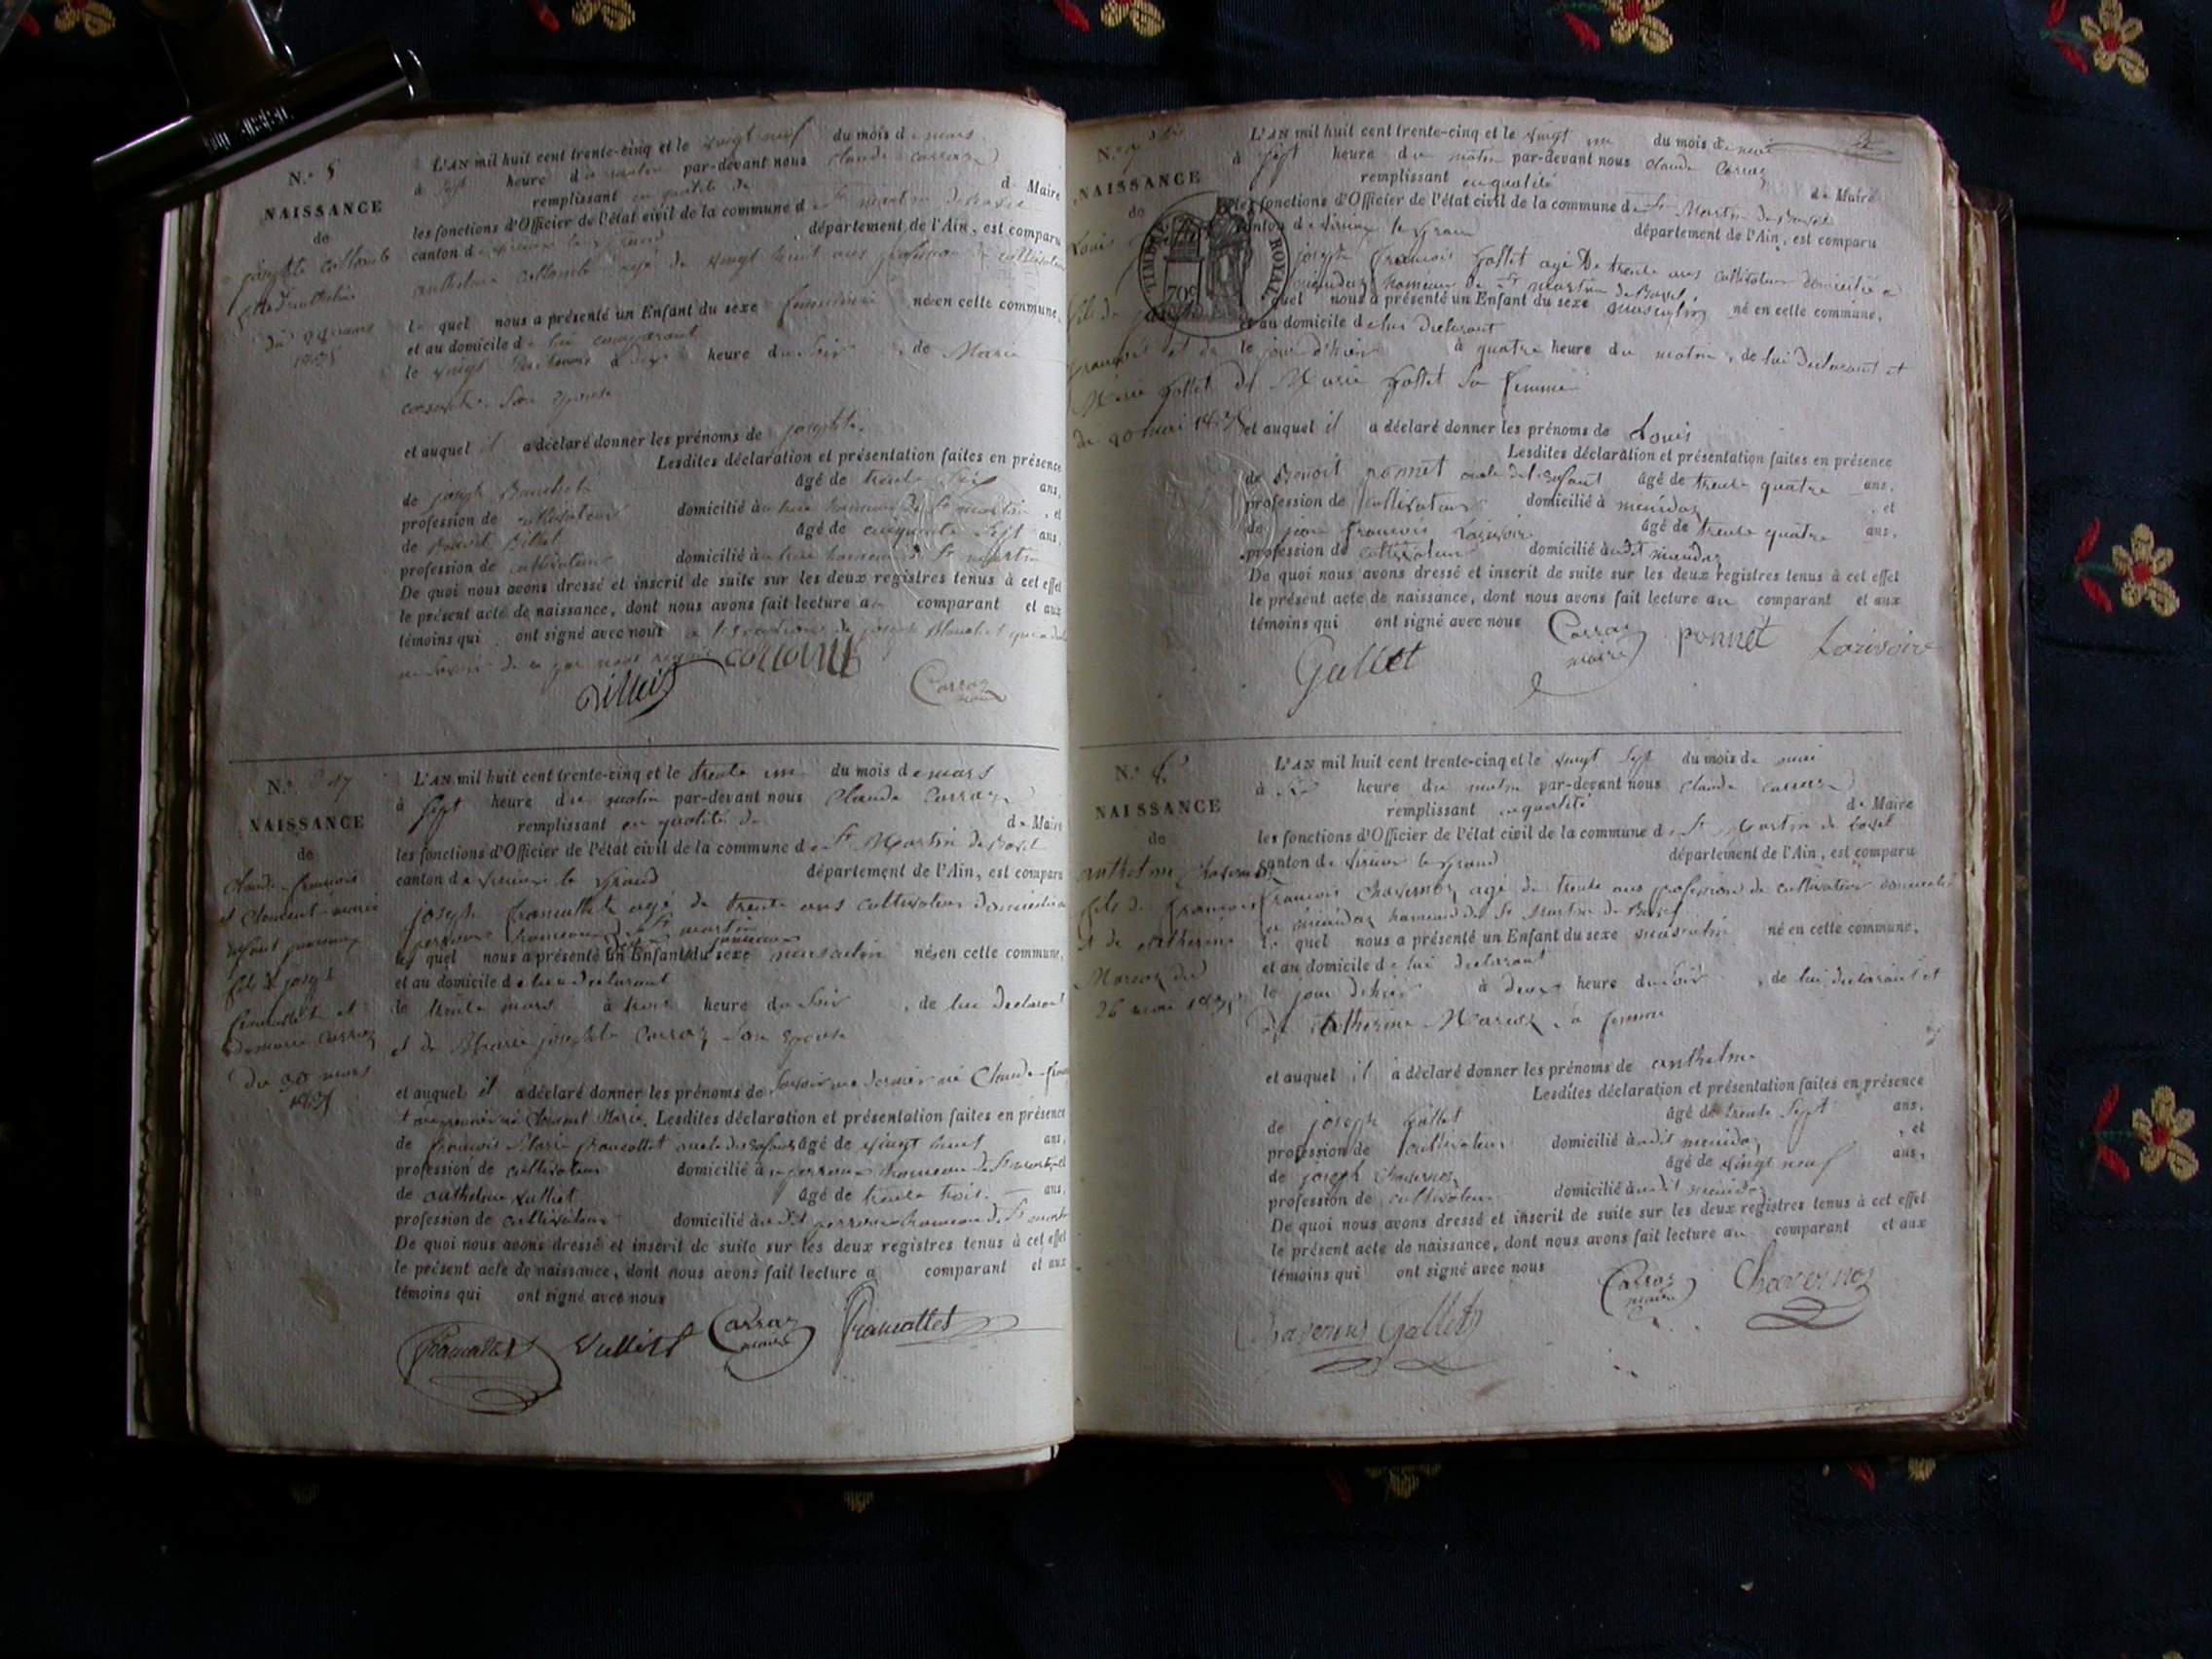 N.º 5
NAISSANCE
de
josephte collomb
du 28 mars
1835
L'AN mil huit cent trente-cinq et le vingt neuf du mois de mars
à sept heure du matin par-devant nous claude carraz
remplissant en qualité de de Maire
les fonctions d'Officier de l'état civil de la commune de St martin de Bavel
canton de virieux le grand département de l'Ain, est comparu
anthelme collomb agé de vingt huit ans profession de cultivateur
le quel nous a présenté un Enfant du sexe feminin né en cette commune,
et au domicile de lui comparant
le vingt heure du soir, de Marie
son epouse
et auquel il a déclaré donner les prénoms de josephte.
Lesdites déclaration et présentation faites en présence
de joseph âgé de trente six ans,
profession de cultivateur domicilié à hameau de St martin, et
de Billiet âgé de cinquante sept ans,
profession de cultivateur domicilié à hameau de St martin
De quoi nous avons dressé et inscrit de suite sur les deux registres tenus à cet effet
le présent acte de naissance, dont nous avons fait lecture au comparant et aux
témoins qui ont signé avec nous a l'exception de joseph
collomb
Carraz
maire
N.º
NAISSANCE
de
claude-françois
et clement-marie
enfant jumeaux
fils de joseph
francallet et
de marie Carraz
du 30 mars
1835
L'AN mil huit cent trente-cinq et le trente un du mois de mars
à sept heure du matin par-devant nous Claude Carraz
remplissant en qualité de de Maire
les fonctions d'Officier de l'état civil de la commune de St Martin de Bavel
canton de virieux le grand département de l'Ain, est comparu
joseph francallet agé de trente ans cultivateur domicilié a
hameau de St martin
deux jumeaux
le quel nous a présenté un Enfant du sexe masculin né en cette commune,
et au domicile de lui declarant
le trente mars à trois heure du soir, de lui declarant
et de Marie josephte Carraz son epouse
et auquel il a déclaré donner les prénoms de savoir au dernier né Claude-françois
et au premier né Clement Marie. Lesdites déclaration et présentation faites en présence
de françois Marie francallet oncle des enfans âgé de vingt huit ans,
profession de cultivateur domicilié à hameau de St martin
de anthelme Vulliet âgé de trente trois ans,
profession de cultivateur domicilié audit hameau de St martin
De quoi nous avons dressé et inscrit de suite sur les deux registres tenus à cet effet
le présent acte de naissance, dont nous avons fait lecture a comparant et aux
témoins qui ont signé avec nous
francallet Vulliet Carraz francallet
maire
N.º 7
NAISSANCE
de
Louis
fils de
françois et de
Marie Gallet
du 20 mai 1835
TIMBRE ROYAL
70c
L'AN mil huit cent trente-cinq et le vingt un du mois de mai
à sept heure du matin par-devant nous claude Carraz
remplissant en qualité de Maire
les fonctions d'Officier de l'état civil de la commune de St Martin de Bavel
canton de virieux le grand département de l'Ain, est comparu
joseph françois Gallet agé De trente ans cultivateur domicilié a
hameau de St martin de Bavel,
quel nous a présenté un Enfant du sexe masculin né en cette commune,
et au domicile de lui declarant
le jour d'hier à quatre heure du matin, de lui declarant et
de Marie Gallet sa femme
et auquel il a déclaré donner les prénoms de Louis
Lesdites déclaration et présentation faites en présence
de Benoit ponnet oncle de l'enfant âgé de trente quatre ans,
profession de cultivateur domicilié à, et
de jean françois Loisvoir âgé de trente quatre ans,
profession de cultivateur domicilié audit
De quoi nous avons dressé et inscrit de suite sur les deux registres tenus à cet effet
le présent acte de naissance, dont nous avons fait lecture au comparant et aux
témoins qui ont signé avec nous
Gallet Carraz ponnet
maire
N.º 8
NAISSANCE
de
anthelme chavernoz
fils de françois
et de catherine
Marcoz du
26 mai 1835
L'AN mil huit cent trente-cinq et le vingt sept du mois de mai
à six heure du matin par-devant nous claude carraz
remplissant en qualité de Maire
les fonctions d'Officier de l'état civil de la commune de St Martin de Bavel
canton de virieux le grand département de l'Ain, est comparu
françois Chavernoz agé de trente ans profession de cultivateur domicilié
a hameau de St Martin de Bavel
le quel nous a présenté un Enfant du sexe masculin né en cette commune,
et au domicile de lui declarant
le jour d'hier à deux heure du soir, de lui declarant et
de Catherine Marcoz sa femme
et auquel il a déclaré donner les prénoms de anthelme
Lesdites déclaration et présentation faites en présence
de joseph Gallet âgé de trente sept ans,
profession de cultivateur domicilié audit, et
de joseph Chavernoz âgé de vingt neuf ans,
profession de cultivateur domicilié audit
De quoi nous avons dressé et inscrit de suite sur les deux registres tenus à cet effet
le présent acte de naissance, dont nous avons fait lecture au comparant et aux
témoins qui ont signé avec nous
Chavernoz Gallet Carraz Chavernoz
maire